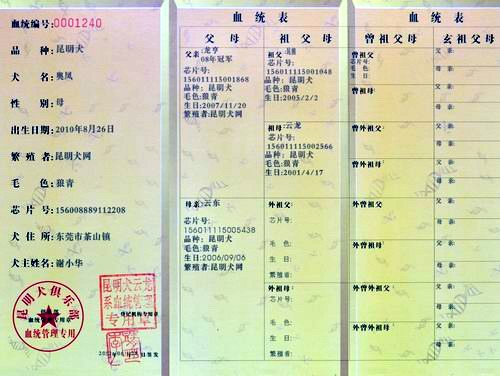 血统编号:0001240
品 种: 昆明犬
犬 名: 奥凤
性 别: 母
出生日期: 2010年8月26日
繁 殖 者: 昆明犬网
毛 色: 狼青
芯 片 号: 156008889112208
犬 住 所: 东莞市茶山镇
犬主姓名: 谢小华
昆明犬俱乐部
血统管理专用章
血统管理专用
昆明犬云龙
系血统管理
专用章
登记机构专用章
血统表
父母
祖父母
父亲:龙亨
08年冠军
芯片号:
156011115001868
品种: 昆明犬
毛色:狼青
生日:2007/11/20
繁殖者:昆明犬网
祖父:
芯片号:
156011115001048
品种: 昆明犬
毛色:狼青
生日:2005/2/2
祖母:云龙
芯片号:
156011115002566
品种: 昆明犬
毛色:狼青
生日:2001/4/17
母亲:云东
芯片号:
156011115005438
品种: 昆明犬
毛色:狼青
生日:2006/09/06
繁殖者:昆明犬网
外祖父:
芯片号:
毛 色:
生 日:
繁殖者:
外祖母:
芯片号:
毛 色:
生 日:
繁殖者:
血统表
曾祖父母
玄祖父母
曾祖父:
芯片号:
毛色:
生日:
父 亲:
母 亲:
曾祖母:
父 亲:
母 亲:
曾外祖父:
父 亲:
母 亲:
曾外祖母:
父 亲:
母 亲:
外曾祖父:
父 亲:
母 亲:
外曾祖母:
父 亲:
母 亲:
曾外祖父:
父 亲:
母 亲:
曾外外祖母:
父 亲:
母 亲: